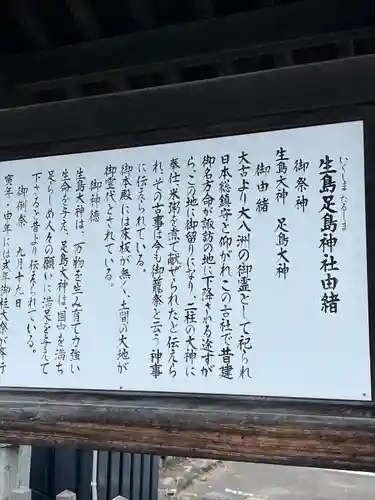 いくしま たるしま
生島足島神社由緒
御祭神
生島大神 足島大神
御由緒
太古より大八洲の御霊として祀られ
日本総鎮守と仰がれ、この古社で昔建
御名方命が諏訪の地に下降される途すが
ら、この地に御留りになり、二柱の大神に
奉仕し米粥を煮て献ぜられたと伝えら
れ、その古事は今も御籠祭と云う神事
に伝えられている。
御本殿には床板が無く、土間の大地が
御霊代とされている。
御神徳
生島大神は、万物を生み育て力強い
生命を与え、足島大神は国中を満ち
足らしめ人々の願いに満足を与えて
下さると昔より伝えられている。
御例祭 九月十九日
寅年・申年には式年御柱大祭が奉行